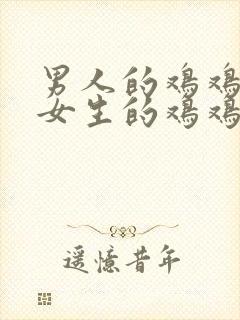 男人的鸡鸡
女生的鸡鸡
遥憶昔年